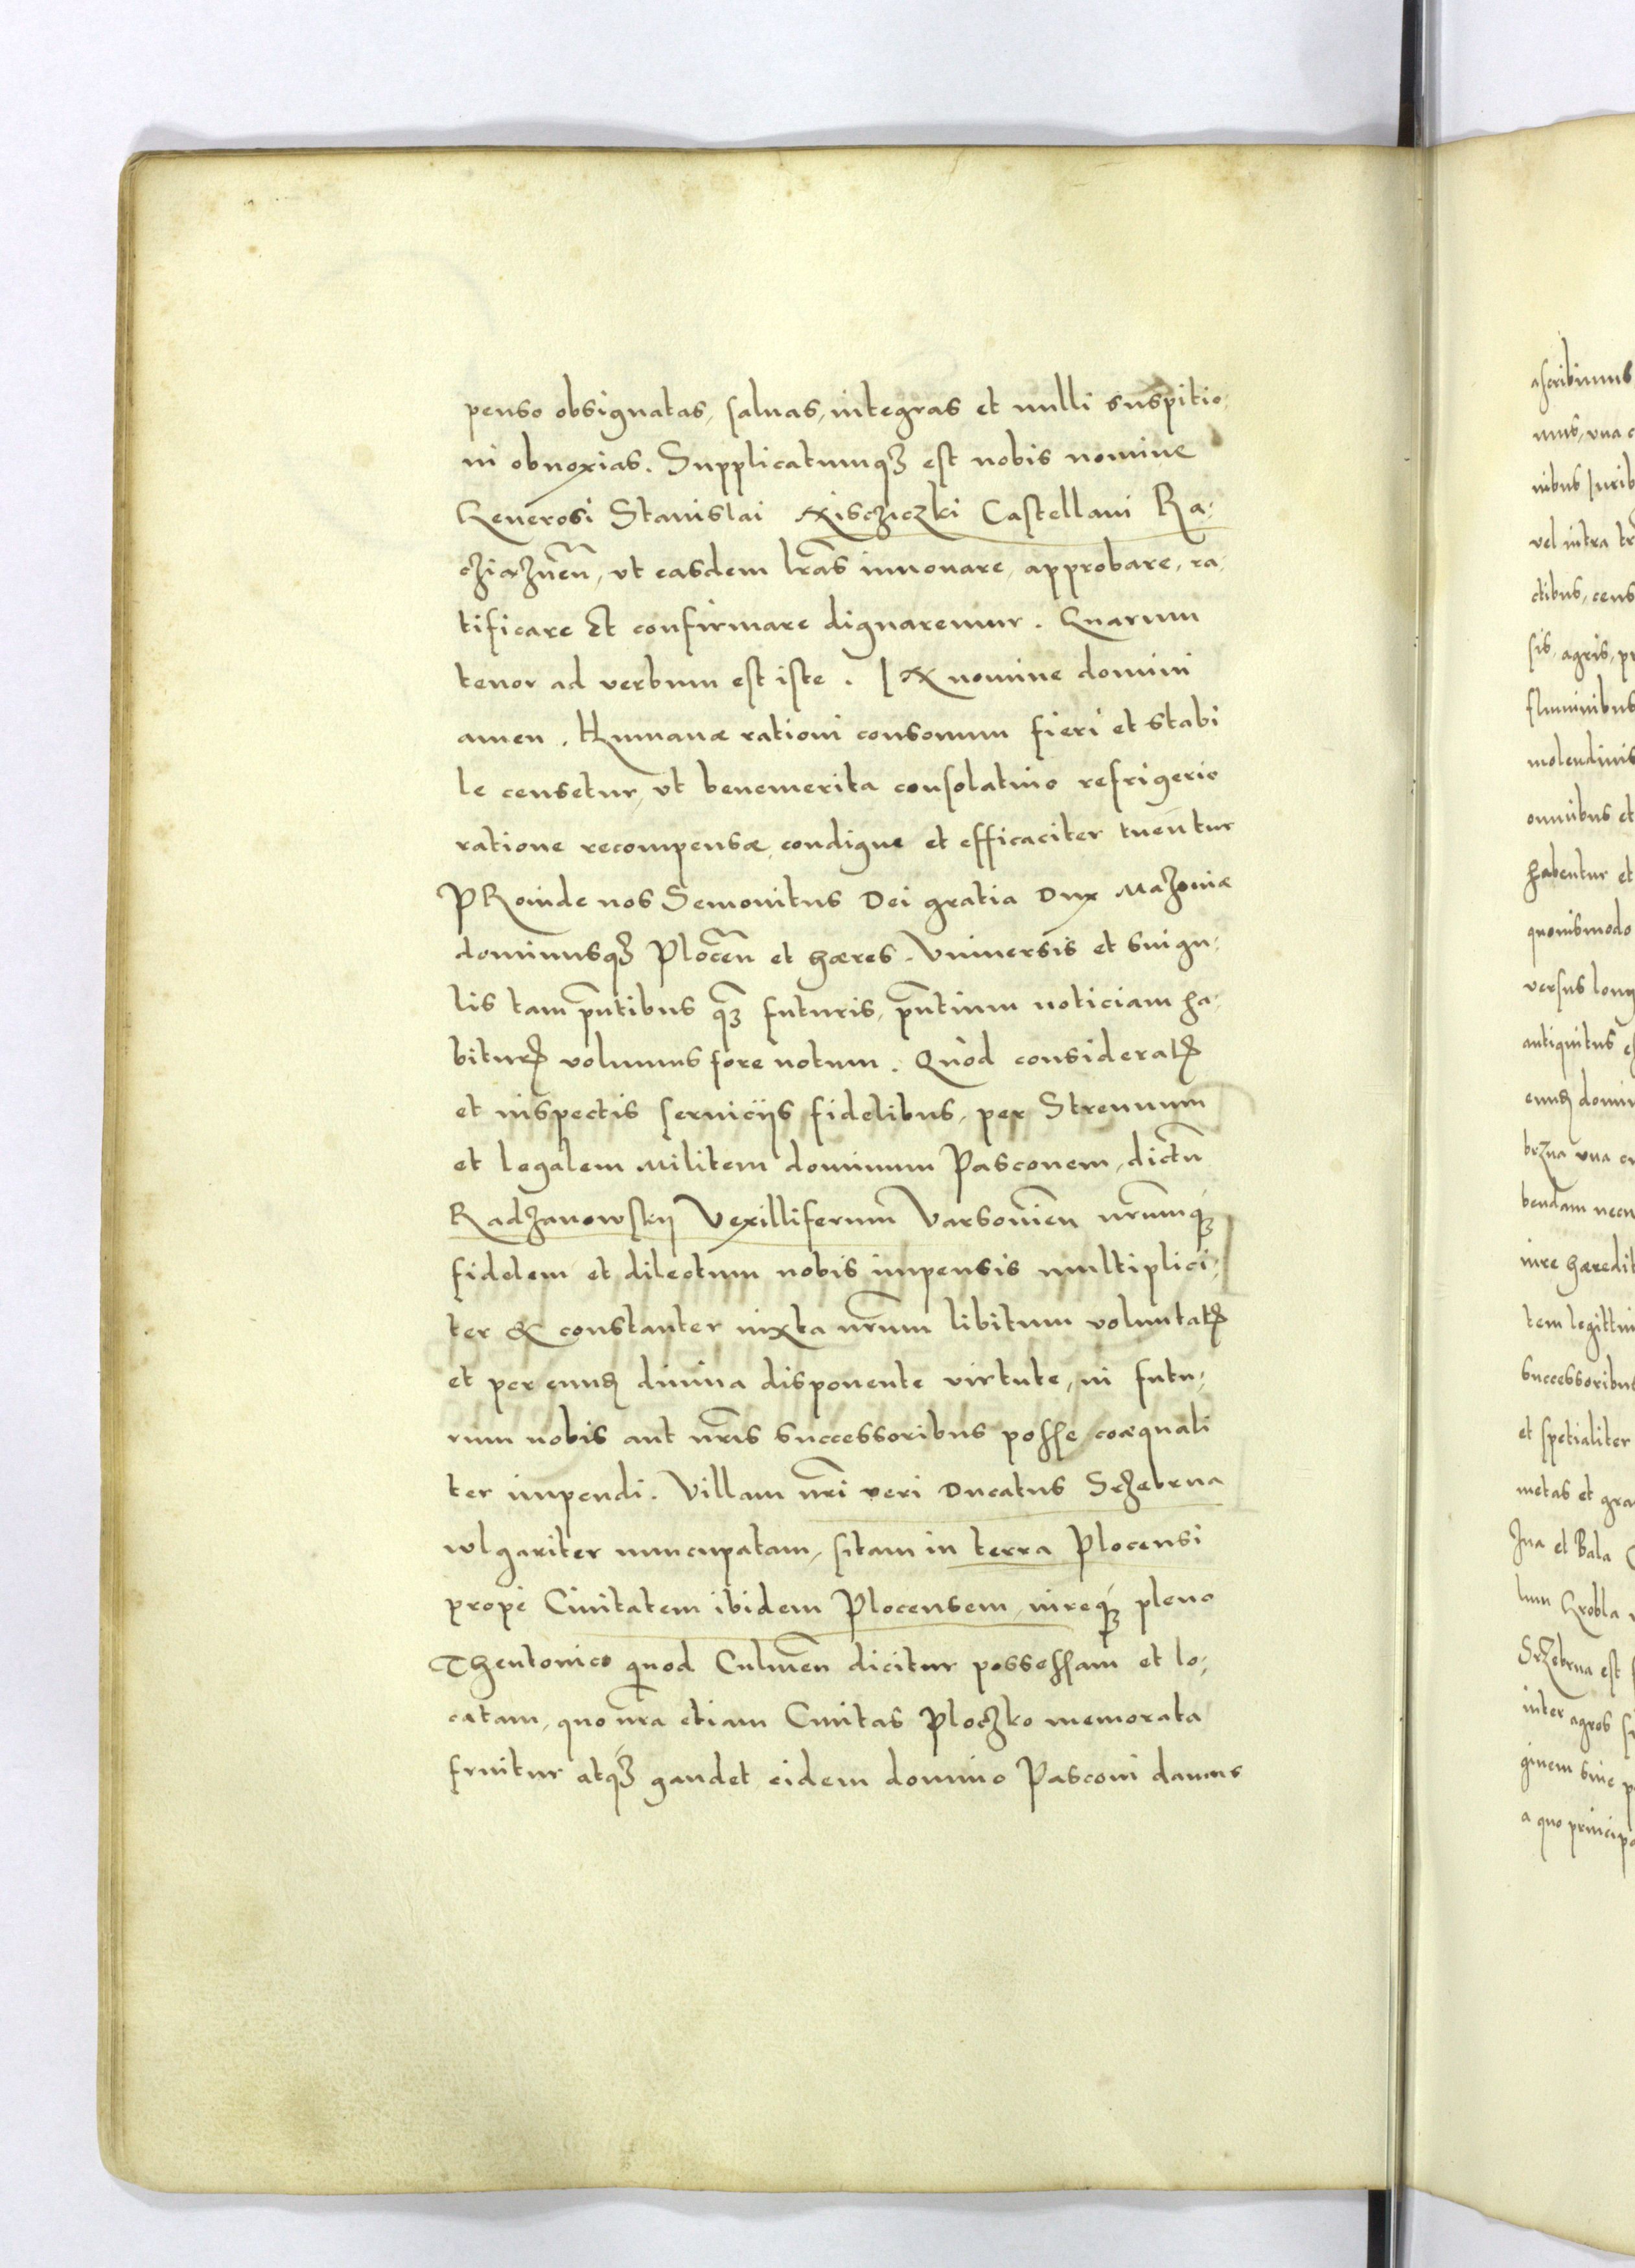 penso obsignatas, saluas, integras et nulli suspitio-
ni obnoxias. Supplicatumq₃ est nobis nomine
Generosi Stanislai Nisczyczki Castellani Ra-
cziążnen̄, vt easdem lr̄as innouare, approbare, ra-
tificare Et confirmare dignaremur. Quarum
tenor ad verbum est iste. IN nomine domini
amen. Humanæ rationi consonum fieri et stabi
le censetur, vt benemerita consolatiuo refrigerio
ratione recompensæ condigne et efficaciter tuentur
PRoinde nos Semouitus Dei gratia Dux Mazouiæ
dominusq₃ Plocen̄ et hæres. Vniuersis et singu-
lis tam pn̄tibus q̄₃ futuris, pn̄tium noticiam ha-
biturꝭ volumus fore notum. Quòd consideratꝭ
et inspectis seruicijs fidelibus, per Strenuum
et legalem Militem dominum Pasconem, dictū
Radzanowskij Vexilliferum Varsouien̄ nr̄umq₃
fidelem et dilectum nobis impensis multiplici-
ter & constanter iuxta nr̄um libitum voluntatꝭ
et per eundꝭ diuina disponente virtute, in futu-
rum nobis aut nr̄is successoribus posse coæquali
ter impendi. Villam nr̄i veri Ducatus Srzebrna
wlgariter nuncupatam, sitam in terra Plocensi
propè Ciuitatem ibidem Plocensem, iureq₃ pleno
Theutonico quod Culmen̄ dicitur possessam et lo-
catam, quo nr̄a etiam Ciuitas Ploczko memorata
fruitur atq₃ gaudet eidem domino Pasconi damus
ascribimus
nibus Iurib
vel intra
ctibus, cens
sis, agris, pr
fluminibus
molendinis
omnibus et
habentur et
quouismodo
versus long
antiquitus
brzna vna
bendam necn
iure hæredit
tem legittim
successoribus
et spetialiter
metas et gra
et Bala
Grobla
Srzebrna est
inter agros
ginem siue p
a quo principa